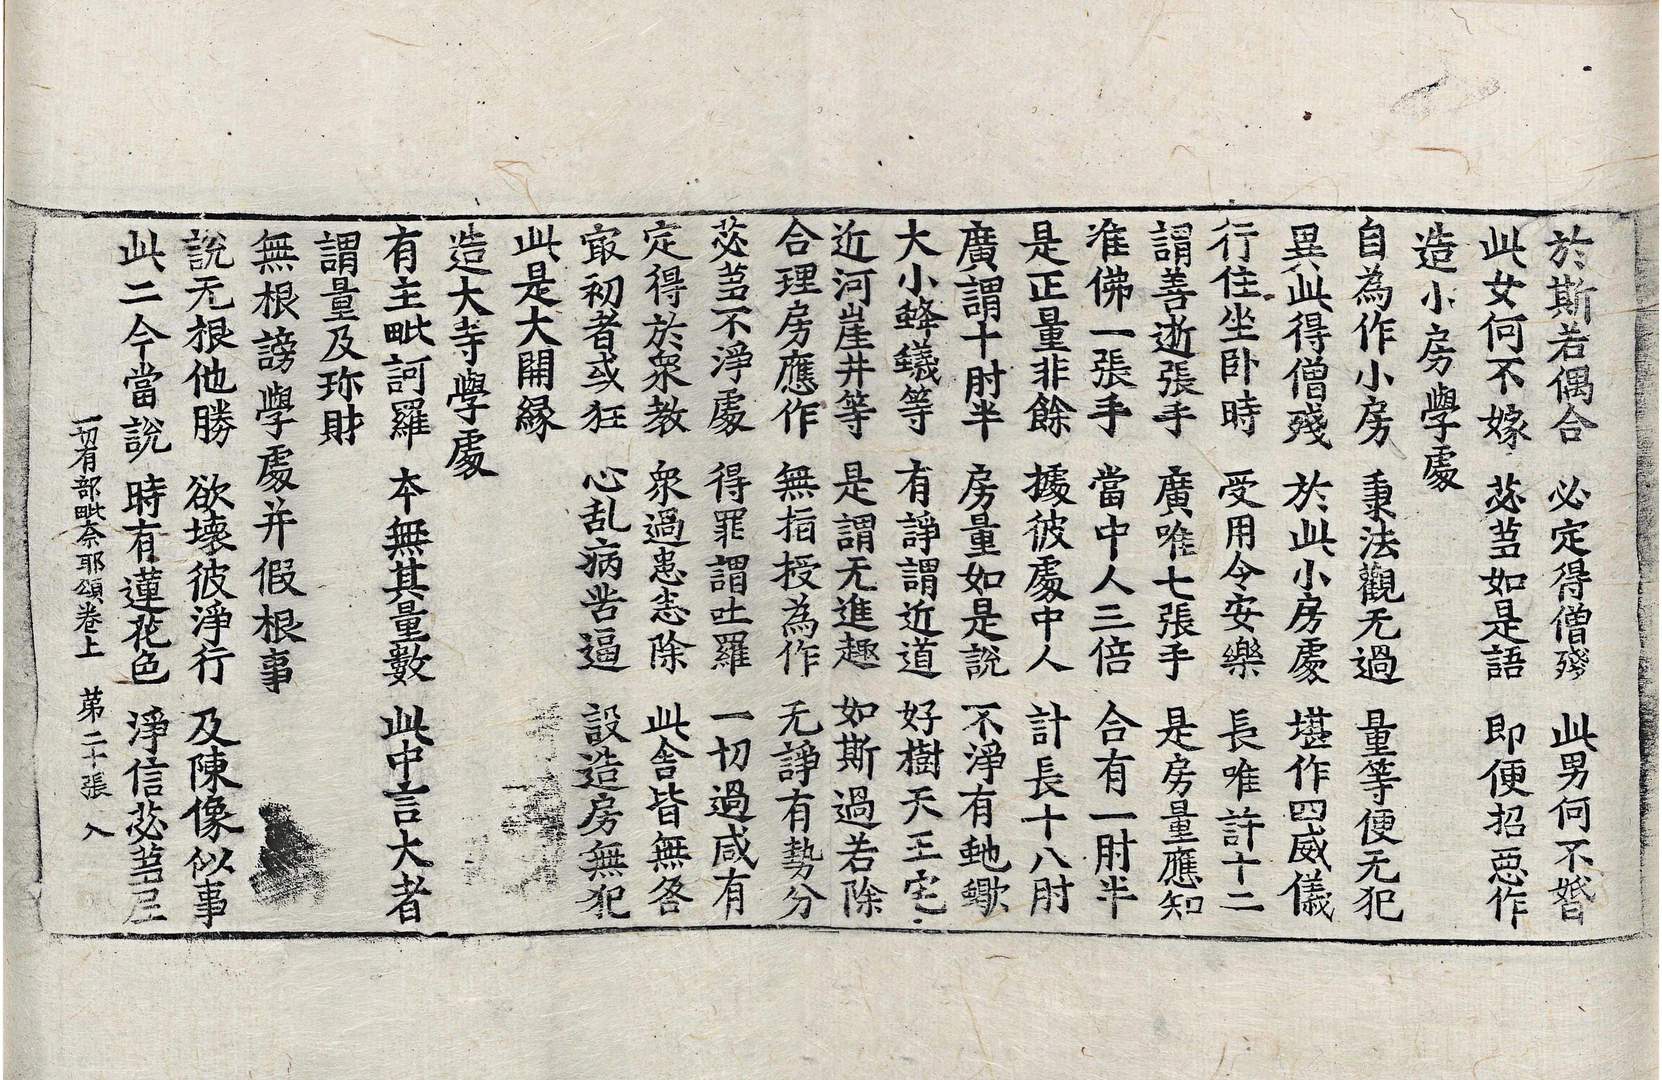 於斯若偶合　必定得僧殘　此男何不婚
此女何不嫁　苾芻如是語　即便招惡作
造小房學處
自為作小房　秉法觀无過　量等便无犯
異此得僧殘　於此小房處　堪作四威儀
行住坐卧時　受用令安樂　長唯許十二
謂善逝張手　廣唯七張手　是房量應知
准佛一張手　當中人三倍　合有一肘半
是正量非餘　據彼處中人　計長十八肘
廣謂十肘半　房量如是說　不淨有虵蠍
大小蜂蟻等　有諍謂近道　好樹天王宅
近河崖井等　是謂无進趣　如斯過若除
合理房應作　無指授為作　无諍有勢分
苾芻不淨處　得罪謂吐羅　一切過咸有
定得於衆教　衆過患恙除　此舍皆無咎
㝡初者或狂　心乱病苦逼　設造房無犯
此是大開緣
造大寺學處
有主毗訶羅　本無其量數　此中言大者
謂量及珎財
無根謗學處并假根事
說无根他勝　欲壞彼淨行　及陳像似事
此二今當說　時有蓮花色　淨信苾芻尼
一切有部毗奈耶頌卷上　第二十張　入